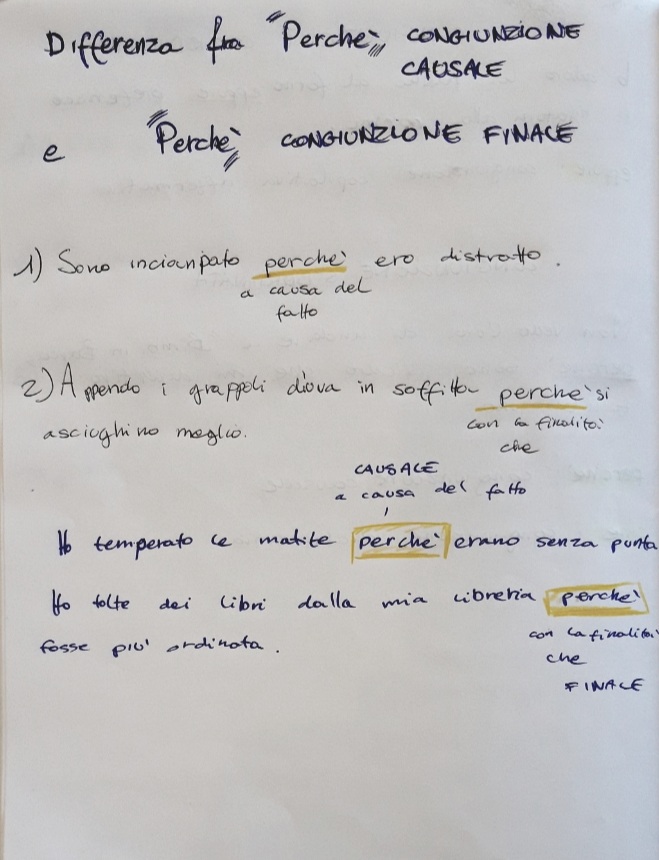 Differenza fra "Perchè", CONGIUNZIONE
CAUSALE
e "Perchè" CONGIUNZIONE FINALE
1) Sono inciampato perchè ero distratto.
a causa del
fatto
2) Appendo i grappoli d'uva in soffitta perchè si
asciughino meglio.
con la finalità
che
CAUSALE
a causa del fatto
Ho temperato le matite perchè erano senza punta
Ho tolte dei libri dalla mia libreria perchè
fosse più ordinata.
con la finalità
che
FINALE